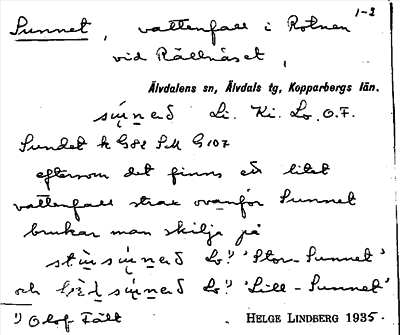 1-2
Sunnet, vattenfall i Rotnen
vid Rällnäset,
Älvdalens sn, Älvdals tg, Kopparbergs län.
Li. Ki. Lo. O.F.
Sundet k G82 S.M G107
eftersom det finns ett litet
vattenfall strax ovanför Sunnet
brukar man skilja på
Lo¹⁾ 'Stor-Sunnet'
och Lo¹⁾ 'Lill-Sunnet'
¹⁾ Olof Fält . HELGE LINDBERG 1935.